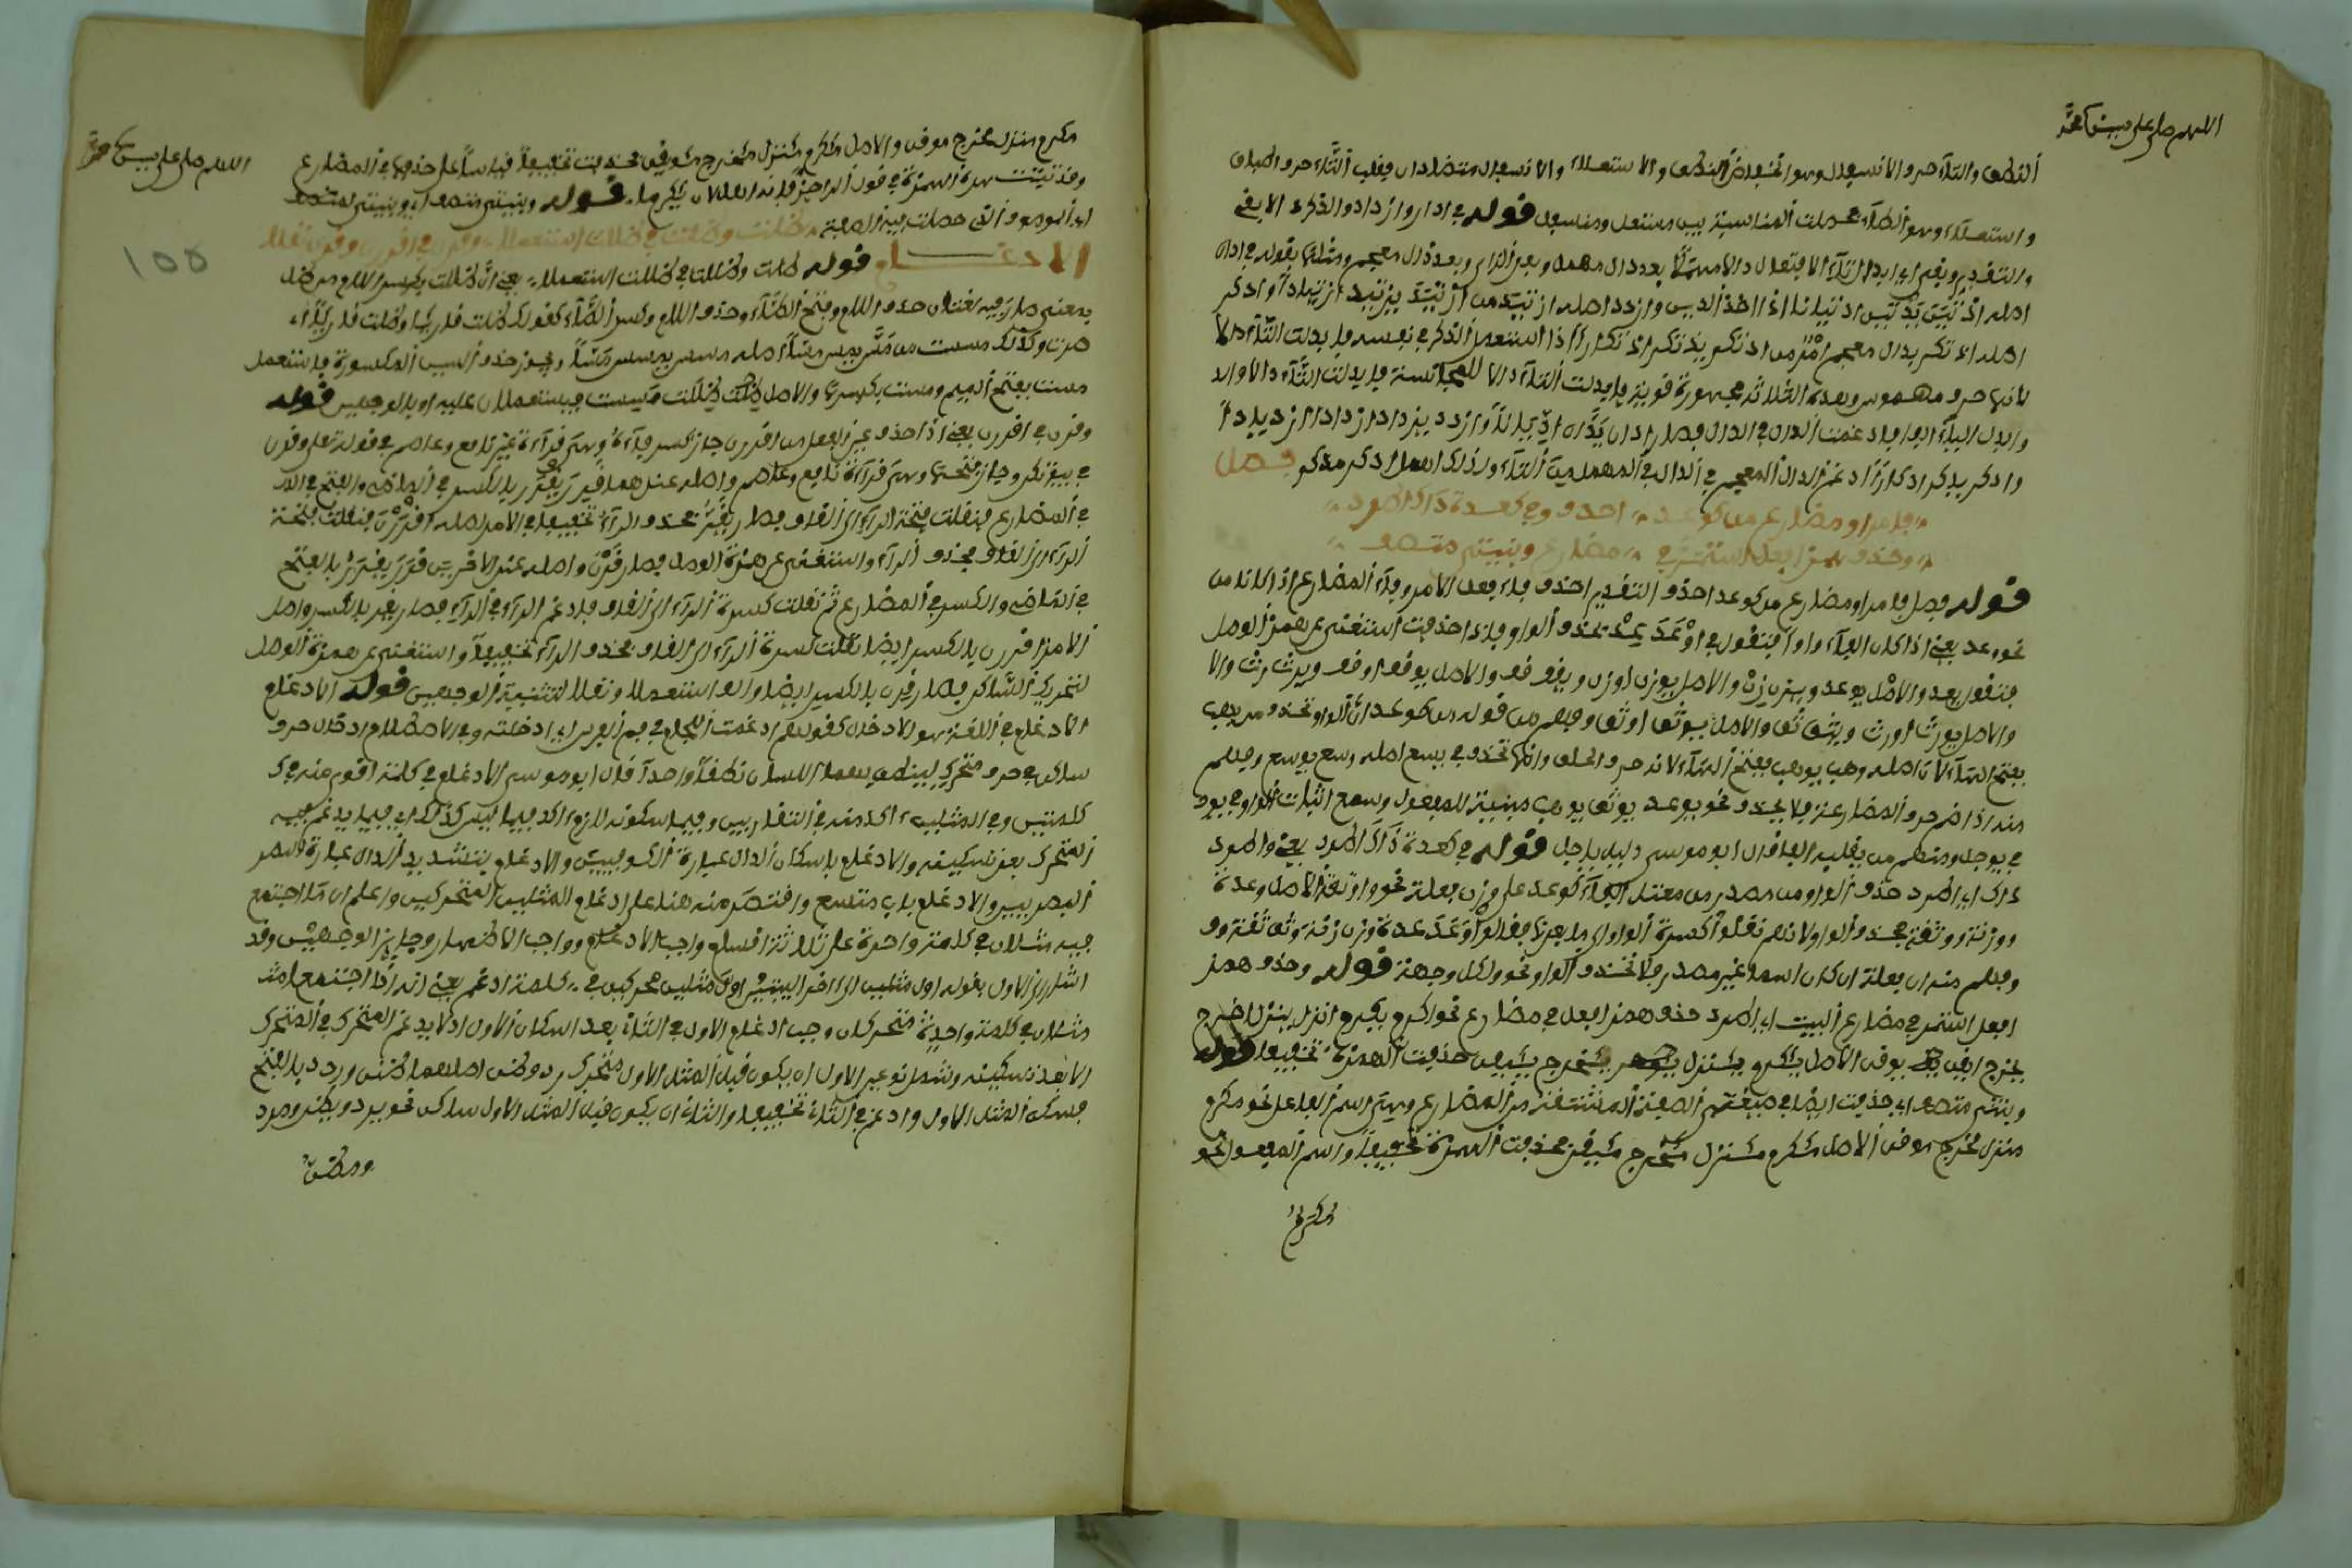 اللهم صل على سيدنا محمد
النطق والتاء حرف الانسفال وهو انخفاض النطق والاستعلاء والانسفال متضادان فقلب التاء حرف اطباق
واستعلاء وهو الطاء فحصلت المناسبة بين مستعل ومنسفل قوله في ادان وازدد وادكر دالا بقي
والتقدير وبقي اي ابدال التاء الافتعال دالا مهملا بعد دال مهمل وبعد الزاي وبعد ذال معجم ومثلها بقوله في ادان
اصله اد اذا اخذ الدين وازدد اصله ازتيد من
اصله اذتكر بذال معجم من اذتكر يذتكر اذتكارا اذا استعمل الذكر في نفسه فابدلت التاء دالا
لانها حرف مهموس وهذه الثلاثة مجهورة قوية فابدلت التاء دالا للمجانسة فابدلت التاء دالا والد
وابدل الياء الفا فادغمت الدال في الدال فصار ادان يدان وازدد يزداد ازدادا ازديادا
وادكر يدكر ادكارا ادغم الذال المعجم في الدال المهملة التاء ولذلك اهمل ادكر مدكر فصل
فا امر او مضارع من كوعد احذف وفي كعدة ذاك اطرد
وحذف همز افعل استمر في مضارع وبنيتي متصف
قوله فصل فا امر او مضارع من كوعد احذف التقدير احذف فاء فعل الامر وفاء المضارع اذا كانا من
نحو وعد يعني اذا كان الفاء واوا فتقول في اوعد عد بحذف الواو فاذا حذفت استغني عن همز الوصل
فتقول يعد والاصل يوعد ويزن زن والاصل يوزن اوزن ويقف قف والاصل يوقف اوقف ويرث رث والا
والاصل يورث اورث ويثق ثق والاصل يوثق اوثق وفهم من قوله من كوعد ان الواو تحذف من يهب
بفتح الهاء لان اصله وهب يوهب بفتح الهاء لانه حرف الحلق وانها تحذف في يسع اصله وسع يوسع وفهم
منه اذا ضم حرف المضارعة فلا يحذف نحو يوعد يوثق يوهب مبنية للمفعول وسمع اثبات الواو في يود
في يوجل ومنهم من يقلبه الفا قال ابو موسى دليله ياجل قوله وفي كعدة ذاك اطرد يعني واطرد
ذاك اي اطرد حذف الواو من مصدر من معتل الفاء كوعد على وزن فعلة نحو وثقة الاصل وعدة
ووزنة ووثقة بحذف الواو لانهم نقلوا كسرة الواو الى ما بعدها فقالوا وعد عدة وزن زنة وثق ثقة
وفهم منه ان فعلة ان كان اسما غير مصدر فلا تحذف الواو نحو ولكل وجهة قوله وحذف همز
افعل استمر في مضارع البيت اي اطرد حذف همز افعل في مضارع نحو اكرم يكرم انزل ينزل اخرج
يخرج ايقن يوقن الاصل يئكرم يئنزل يئخرج يئيقن حذفت الهمزة تخفيفا قوله
وبنيتي متصف اي حذفت ايضا في صيغتي الصفة المشتقة من المضارع وهي اسم الفاعل نحو مكرم
منزل مخرج موقن الاصل مئكرم مئنزل مئخرج مئيقن فحذفت الهمزة تخفيفا واسم المفعول نحو
مكرم
اللهم صل على سيدنا محمد
مكرم منزل مخرج موقن والاصل مئكرم مئنزل مئخرج مئيقن فحذفت تخفيفا قياسا على حذفها في المضارع
وقد ثبتت هذه الهمزة في قول الراجز فانه اهل لان يؤكرما قوله وبنيتي متصف اي وبنيتي متصف
اي الموصوف التي حصلت فيه الصفة ظلت وظلت في ظللت استعملا وقرن في اقررن وقرن نقلا
الادغام قوله ظلت وظلت في ظللت استعملا يعني ان ظللت بكسر اللام من ظل
بمعنى صار فيه لغتان حذف اللام وفتح الظاء وحذف اللام وكسر الظاء كقولك ظلت قاريا وظلت قاريا اي
صرت وكذلك مسست من مس يمس مسا اصله مسس يمسس مسا ويجوز حذف السين المكسورة فاستعمل
مست بفتح الميم ومست بكسرها والاصل ظللت ظللت مسست فيستعملان عليه او بالوجهين قوله
وقرن في اقررن يعني اذا حذف عين الفعل من اقررن جاز كسر فاءه وهي قراءة غير نافع وعاصم في قوله تعلى وقرن
في بيوتكن وجاز فتحها وهي قراءة نافع وعاصم واصله عندهما قرر يقرر بالكسر في الماضي والفتح في الم
في المضارع فنقلت فتحة الراء الى القاف فصار يقر بحذف الراء تخفيفا في الامر اصله اقررن فنقلت فتحة
الراء الى القاف فحذف الراء واستغني عن همزة الوصل فصار قرن واصله عند الاخرين قرر يقرر بالفتح
في الماضي والكسر في المضارع ثم نقلت كسرة الراء الى القاف فادغم الراء في الراء فصار يقر بالكسر واصل
الامر اقررن بالكسر ايضا نقلت كسرة الراء الى القاف فحذف الراء تخفيفا واستغني عن همزة الوصل
لتحريك الساكن فصار قرن بالكسر ايضا والف استعملا ونقلا لتثنية الوجهين قوله الادغام
الادغام في اللغة هو الادخال كقولهم ادغمت اللجام في فم الفرس اي ادخلته وفي الاصطلاح ادخال حرف
ساكن في حرف متحرك لينطق بهما اللسان نطقا واحدا قال ابو موسى الادغام في كلمة اقوى منه في ك
كلمتين وفي المثلين اكد منه في المتقاربين وفيما سكونه لازم اكد فيما ليس كذلك اي فيما يدغم فيه
المتحرك بعد تسكينه والادغام باسكان الدال عبارة الكوفيين والادغام بتشديد الدال عبارة
البصريين والادغام باب متسع واقتصر منه هنا على ادغام المثلين المتحركين واعلم ان ما اجتمع
فيه مثلان في كلمة واحدة على ثلاثة اقسام واجب الادغام وواجب الاظهار وجايز الوجهين وقد
اشار الى الاول بقوله اول مثلين الى اخر البيتين اول مثلين محركين في كلمة ادغم يعني انه اذا اجتمع
مثلان في كلمة واحدة متحركان وجب ادغام الاول في الثاني بعد اسكان الاول اذ لا يدغم المتحرك في المتحرك
الا بعد تسكينه وشمل نوعين الاول ان يكون قبل المثل الاول متحرك رد وظن اصلهما ظنن وردد بالفتح
فسكن المثل الاول وادغم في الثاني تخفيفا والثاني ان يكون قبل المثل الاول ساكن نحو يرد ويظن ومرد
ومظن